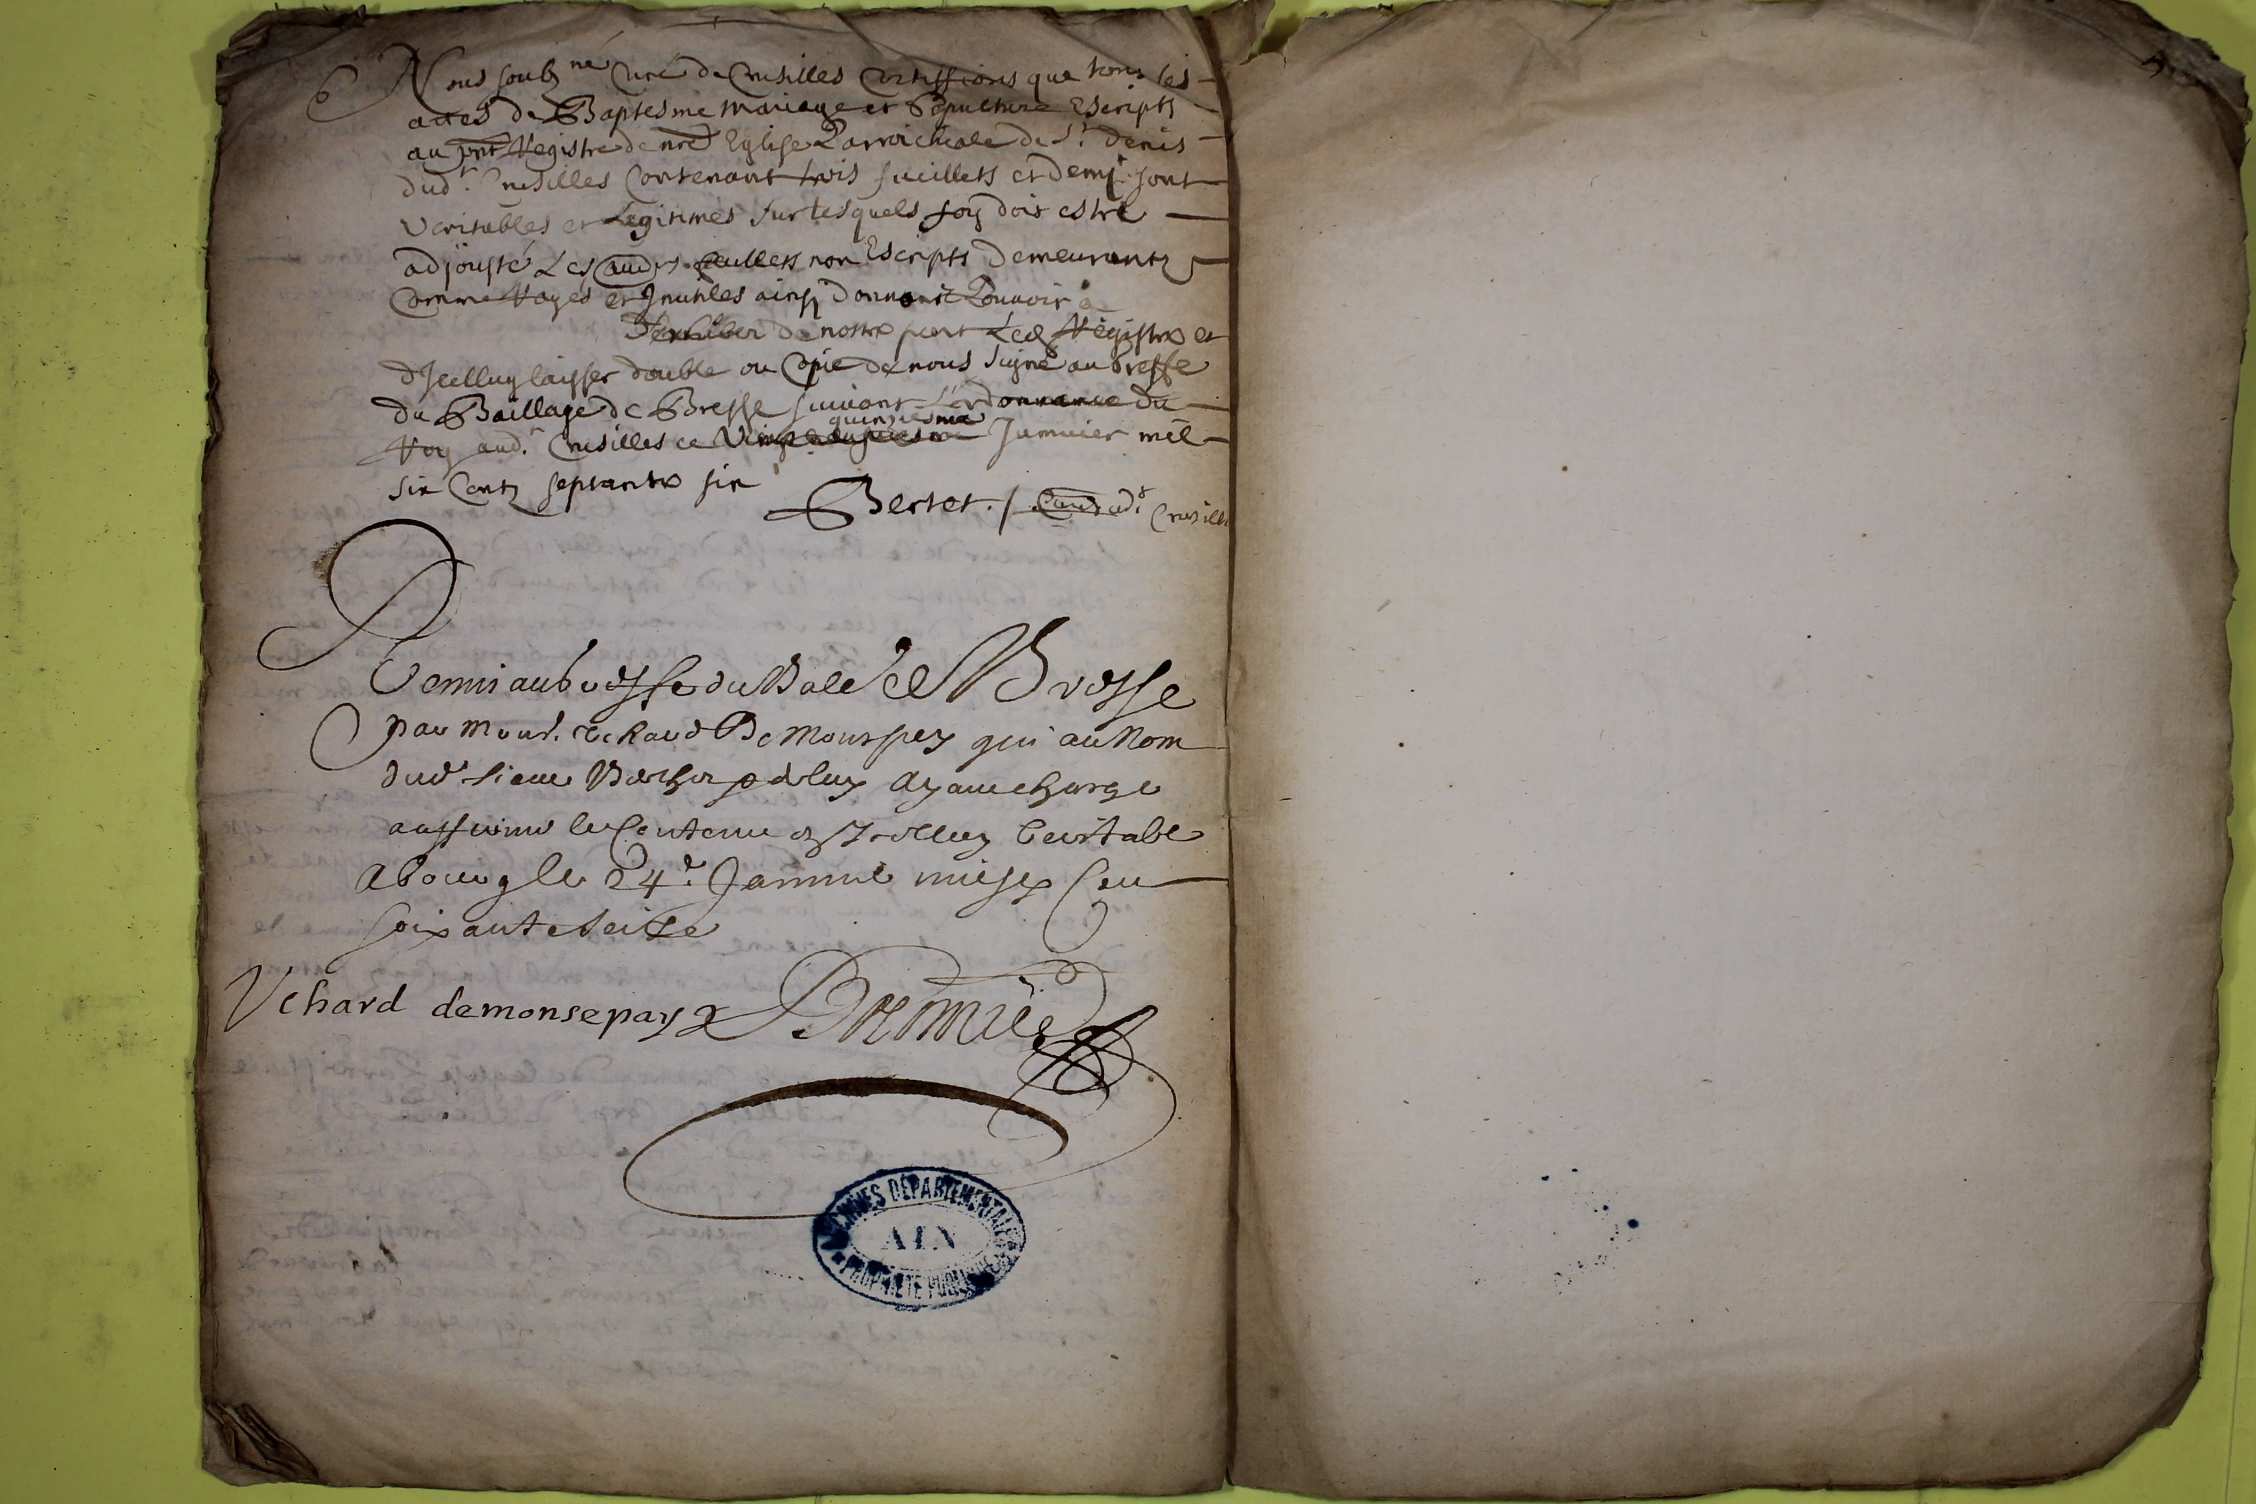 6 Nous soubz né Curé de Crusilles Certiffions que tous les
actes de Baptesme mariage et Sepulture Escripts
au pnt Registre de nre Eglise Parroichiale de St. denis
dud.t Crusilles Contenant trois fueillets et demi sont
veritables et Legitimes sur lesquels foy doit estre
adjousté Les feullets non Escripts demeurants
Comme Rayés et Inutiles ainsi donnons Pouvoir à
d'exhiber de nostre part Led Régistre et
d'Icelluy laisser double ou Copie de nous signé au Greffe
du Baillage de Bresse suivant L'ordonnance du
quinziesme
Roy aud.t Crusilles ce Janvier mil
six Cents septante six
Bertet. / Curé dud.t Crusilles
Remis au Greffe du Bale de Bresse
par mour. Uchard De Monspey qui au Nom
dud. sieur de luy ayant charge
a affirmé le Contenu en Icelluy veritable
A bourg le 24.e Janvier mil six Cent
soixante seize
Uchard demonsepay
ARCHIVES DÉPARTEMENTALES
AIN
PROPRIÉTÉ PUBLIQUE